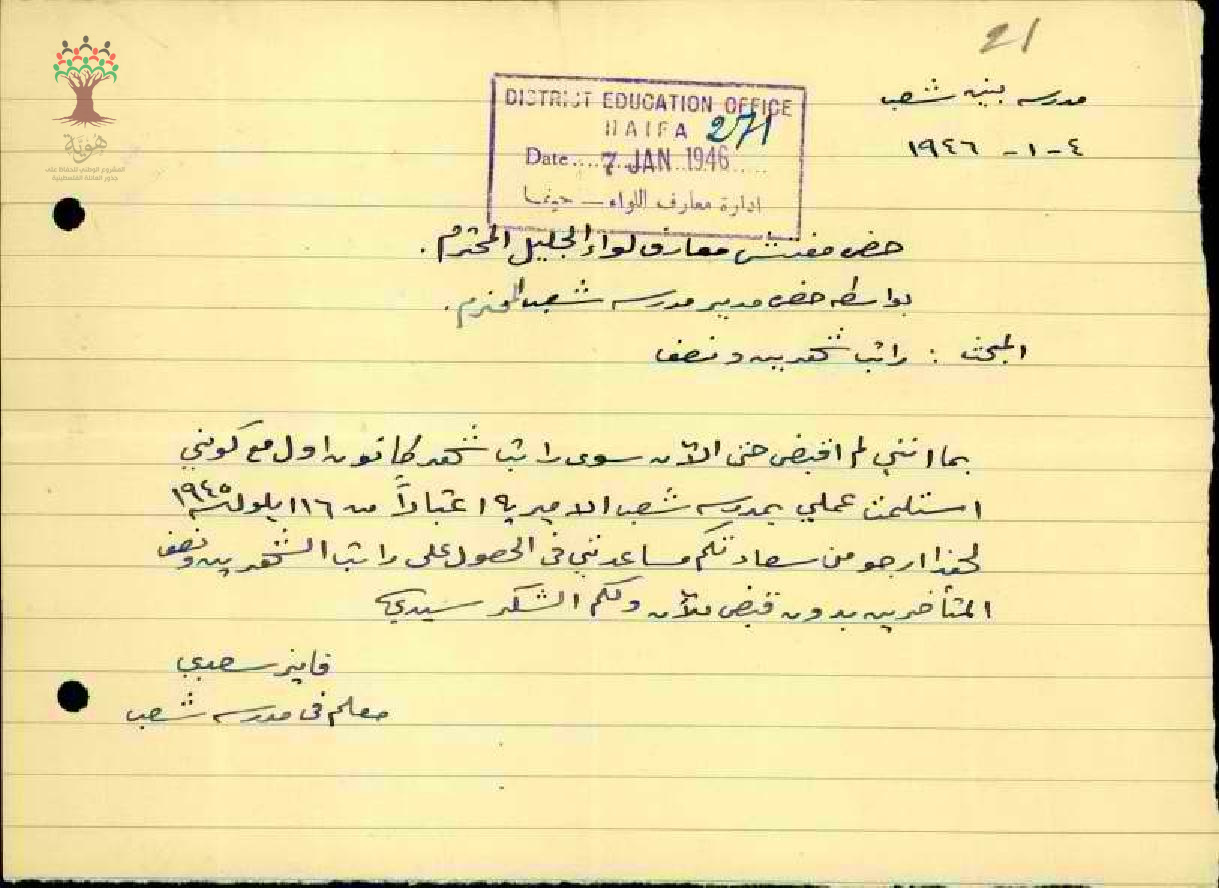 21
مدرسه بنين شعب
٤-١- ١٩٤٦
DISTRICT EDUCATION OFFICE
HAIFA 271
Date.... 7 JAN 1946.....
ادارة معارف اللواء — حيفا
حضرة مفتش معارف لواء الجليل المحترم .
بواسطة حضرة مدير مدرسه شعب المحترم .
المبحث : راتب شهرين ونصف
بما انني لم اقبض حتى الآن سوى راتب شهر كانون اول مع كوني
استلمت عملي بمدرسه شعب الاميريه اعتباراً من ١٦ ايلول سنة ١٩٤٥
لهذا ارجو من سعادتكم مساعدتي في الحصول على راتب الشهرين ونصف
المتأخرين بدون قبض للآن ولكم الشكر سيدي
فايز سعدي
معلم في مدرسه شعب
هُويّة
المشروع الوطني للحفاظ على
جذور العائلة الفلسطينية